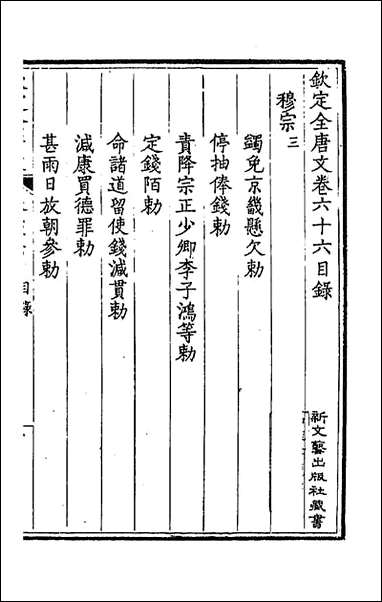 欽定全唐文卷六十六目錄
新文藝出版社藏書
穆宗三
蠲免京畿懸欠勅
停抽俸錢勅
責降宗正少卿李子鴻等勅
定錢陌勅
命諸道留使錢減貫勅
減康買德罪勅
甚雨日放朝參勅
目錄